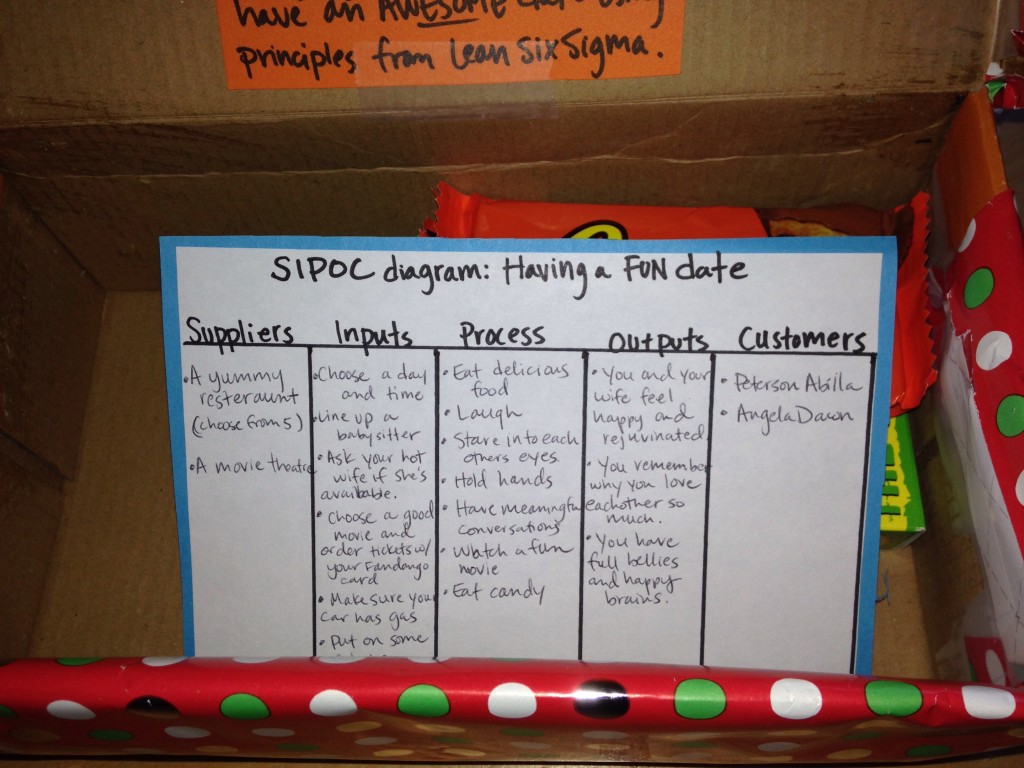 have an AWESOME
principles from Lean Six Sigma.
SIPOC diagram: Having a FUN date
Suppliers
• A yummy
resteraunt
(choose from 5)
• A movie theatre
Inputs
• Choose a day
and time
• Line up a
babysitter
• Ask your hot
wife if she's
available.
• Choose a good
movie and
order tickets w/
your Fandango
card
• Make sure your
car has gas
• Put on some
Process
• Eat delicious
food
• Laugh
• Stare into each
others eyes
• Hold hands
• Have meaningful
conversations
• Watch a fun
movie
• Eat candy
Outputs
• You and your
wife feel
happy and
rejuvinated.
• You remember
why you love
eachother so
much.
• You have
full bellies
and happy
brains.
Customers
• Peterson Abilla
• Angela Dawn